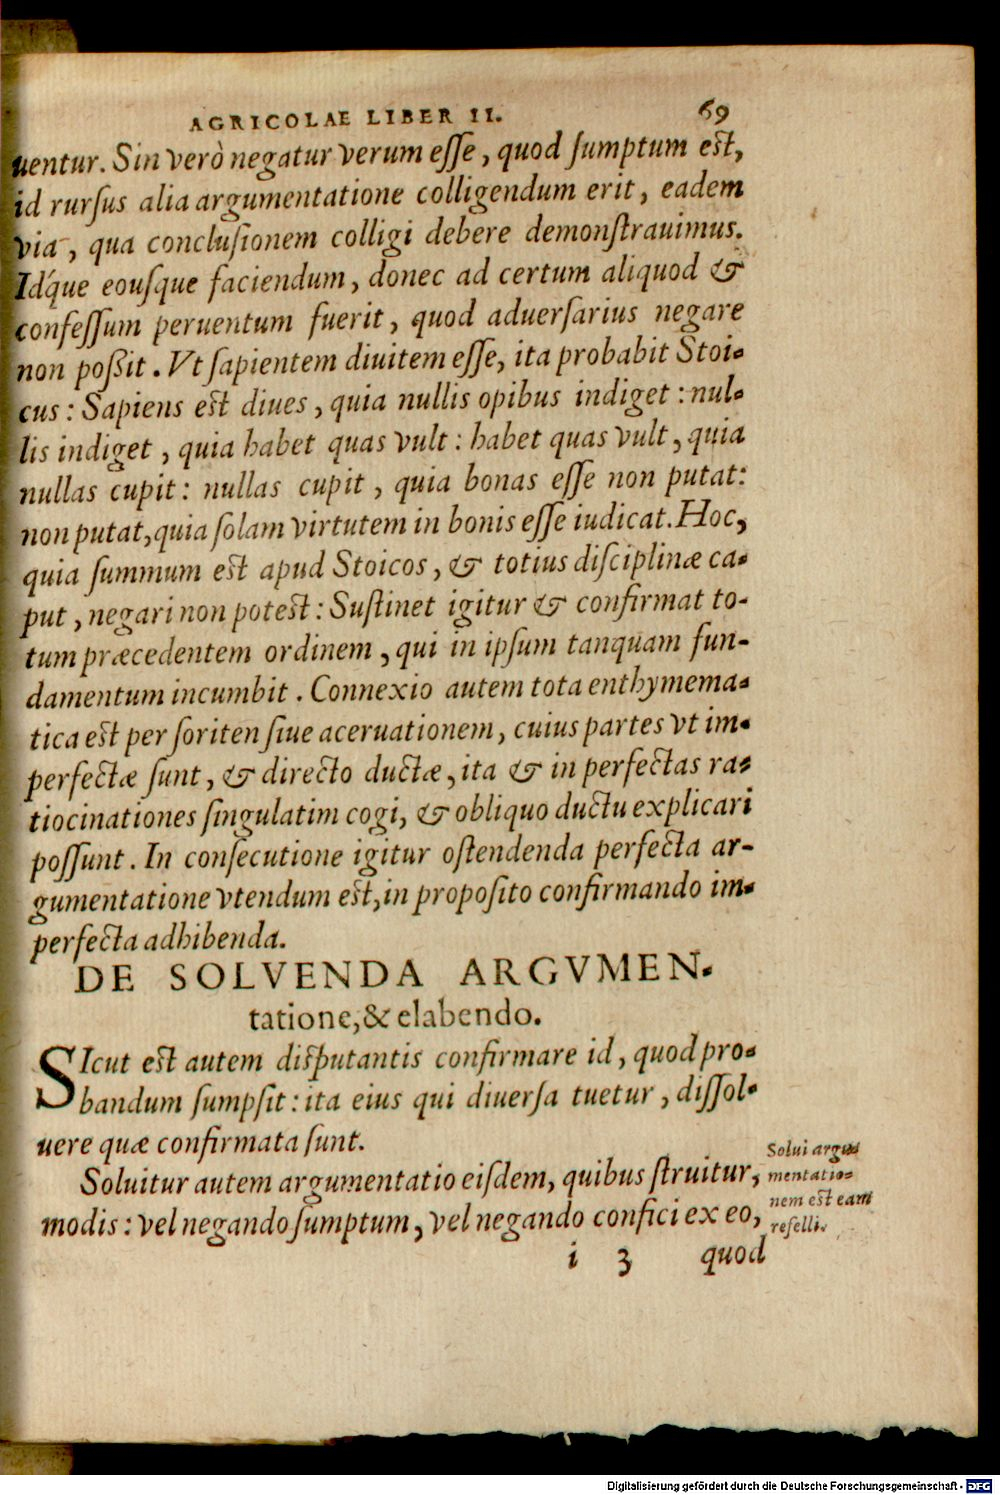 AGRICOLAE LIBER II. 69
uentur. Sin verò negatur verum eſſe, quod ſumptum est,
id rurſus alia argumentatione colligendum erit, eadem
via, qua concluſionem colligi debere demonſtrauimus.
Id'que eouſque faciendum, donec ad certum aliquod &
confeſſum peruentum fuerit, quod aduerſarius negare
non poßit. Vt ſapientem diuitem eſſe, ita probabit Stoi-
cus: Sapiens est diues, quia nullis opibus indiget: nul-
lis indiget, quia habet quas vult: habet quas vult, quia
nullas cupit: nullas cupit, quia bonas eſſe non putat:
non putat, quia ſolam virtutem in bonis eſſe iudicat. Hoc,
quia ſummum est apud Stoicos, & totius diſciplinæ ca-
put, negari non potest: Suſtinet igitur & confirmat to-
tum præcedentem ordinem, qui in ipſum tanquam fun-
damentum incumbit. Connexio autem tota enthymema-
tica est per ſoriten ſiue aceruationem, cuius partes vt im-
perfectæ ſunt, & directo ductæ, ita & in perfectas ra-
tiocinationes ſingulatim cogi, & obliquo ductu explicari
poſſunt. In conſecutione igitur oſtendenda perfecta ar-
gumentatione vtendum est, in propoſito confirmando im-
perfecta adhibenda.
DE SOLVENDA ARGVMEN-
tatione, & elabendo.
SIcut est autem diſputantis confirmare id, quod pro-
bandum ſumpſit: ita eius qui diuerſa tuetur, diſſol-
uere quæ confirmata ſunt.
Soluitur autem argumentatio eiſdem, quibus ſtruitur,
modis: vel negando ſumptum, vel negando confici ex eo,
Solui argu-
mentatio-
nem est eam
refelli.
i 3 quod
Digitalisierung gefördert durch die Deutsche Forschungsgemeinschaft - DFG